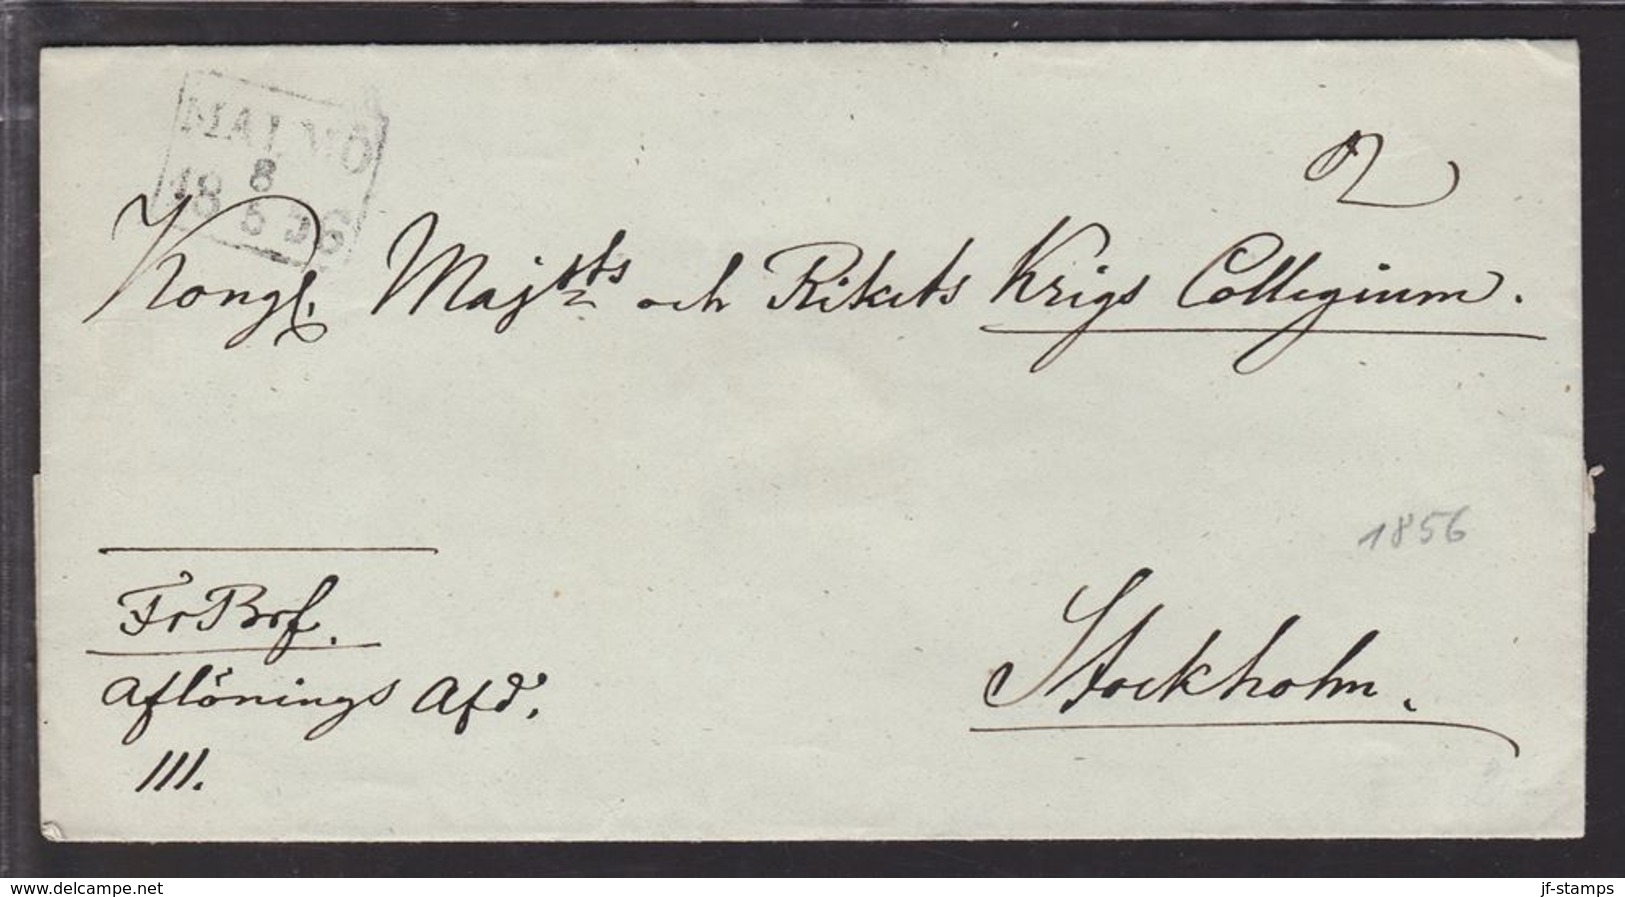 MALMÖ
8
18 5 56
2
Kongl. Majtts och Rikets Krigs Collegium.
1856
FrBrf.
Stockholm.
Aflönings Afd.
III.
www.delcampe.net
jf-stamps